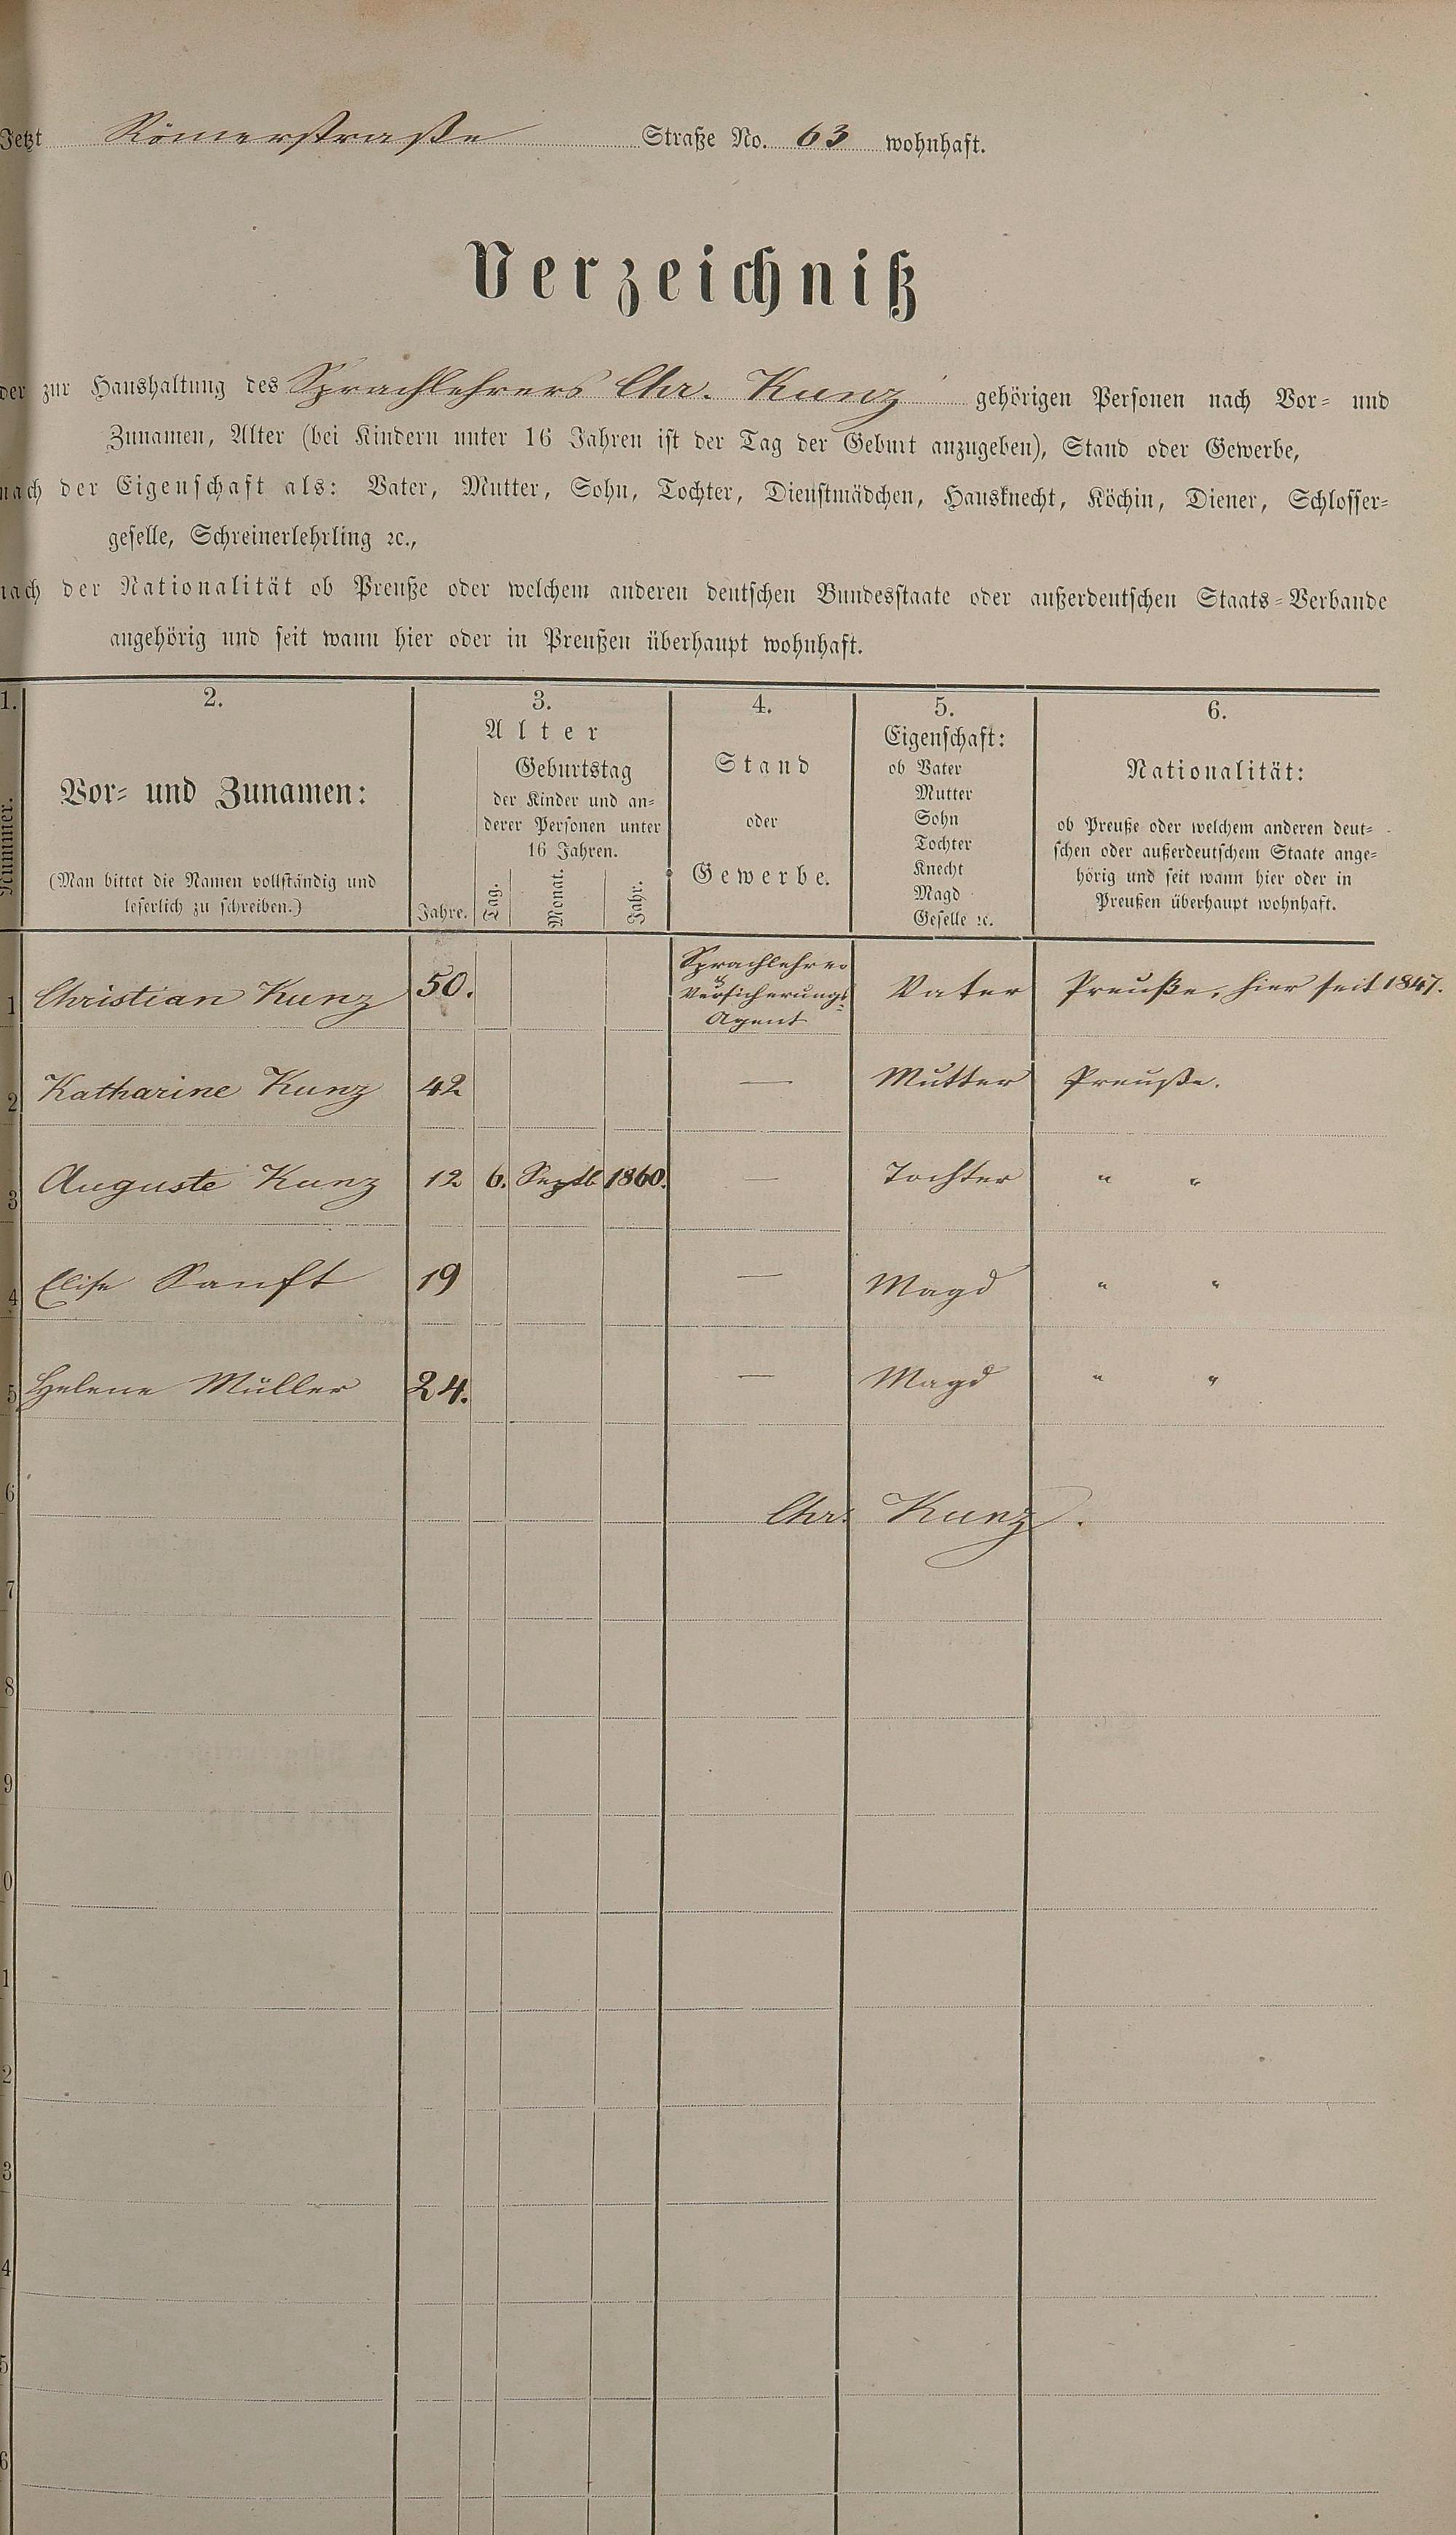 Jetzt Römerstraße Straße No. 63 wohnhaft.
Verzeichniß
der zur Haushaltung des Sprachlehrers Chr. Kunz gehörigen Personen nach Vor- und
Zunamen, Alter (bei Kindern unter 16 Jahren ist der Tag der Geburt anzugeben), Stand oder Gewerbe,
nach der Eigenschaft als: Vater, Mutter, Sohn, Tochter, Dienstmädchen, Hausknecht, Köchin, Diener, Schlosser-
geselle, Schreinerlehrling ꝛc.,
nach der Nationalität ob Preuße oder welchem anderen deutschen Bundesstaate oder außerdeutschen Staats-Verbande
angehörig und seit wann hier oder in Preußen überhaupt wohnhaft.
1. 2. 3. 4. 5. 6.
Nummer.
Vor- und Zunamen:
(Man bittet die Namen vollständig und
leserlich zu schreiben.)
Alter
Geburtstag
der Kinder und an-
derer Personen unter
16 Jahren.
Jahre. Tag. Monat. Jahr.
Stand
oder
Gewerbe.
Eigenschaft:
ob Vater
Mutter
Sohn
Tochter
Knecht
Magd
Geselle ꝛc.
Nationalität:
ob Preuße oder welchem anderen deut-
schen oder außerdeutschem Staate ange-
hörig und seit wann hier oder in
Preußen überhaupt wohnhaft.
1 Christian Kunz 50. Sprachlehrer
&
Versicherungs-
Agent Vater Preuße, hier seit 1847.
2 Katharine Kunz 42 — Mutter Preuße.
3 Auguste Kunz 12 6. Septb 1860. — Tochter " "
4 Elise Sanft 19 — Magd " "
5 Helene Müller 24. — Magd " "
6 Chr. Kunz.
7
8
9
0
1
2
3
4
5
6